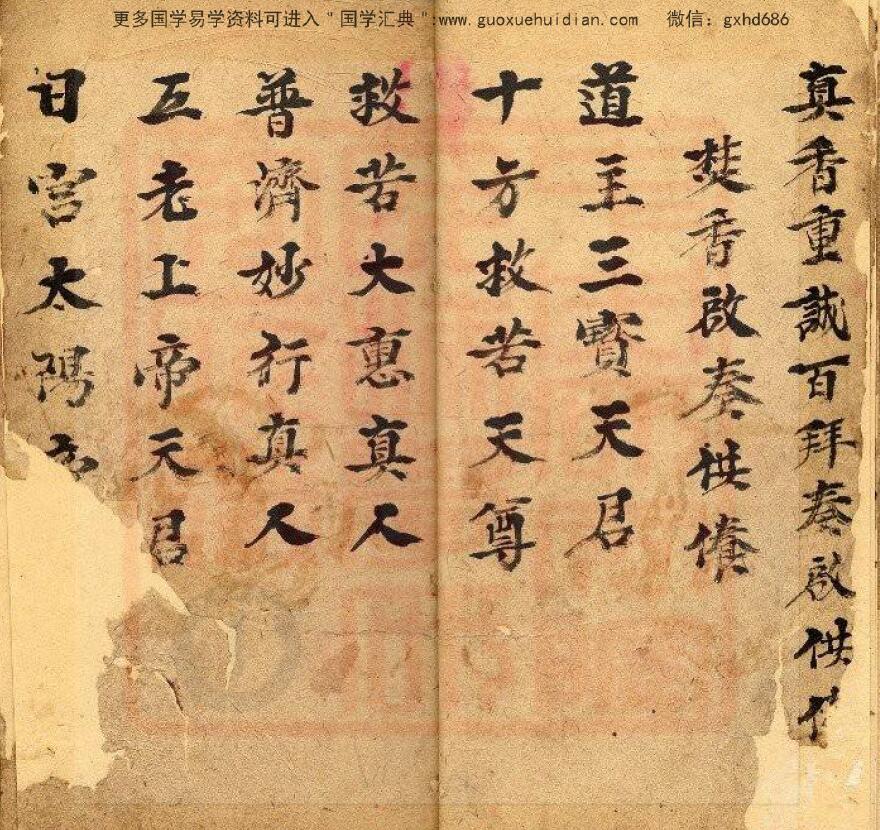 更多国学易学资料可进入＂国学汇典＂:www.guoxuehuidian.com 微信：gxhd686
真香重誠百拜奏啟供
焚香啟奏供儀
道主三寳天君
十方救苦天尊
救苦大惠真人
普濟妙行真人
五老上帝天君
日宮太陽